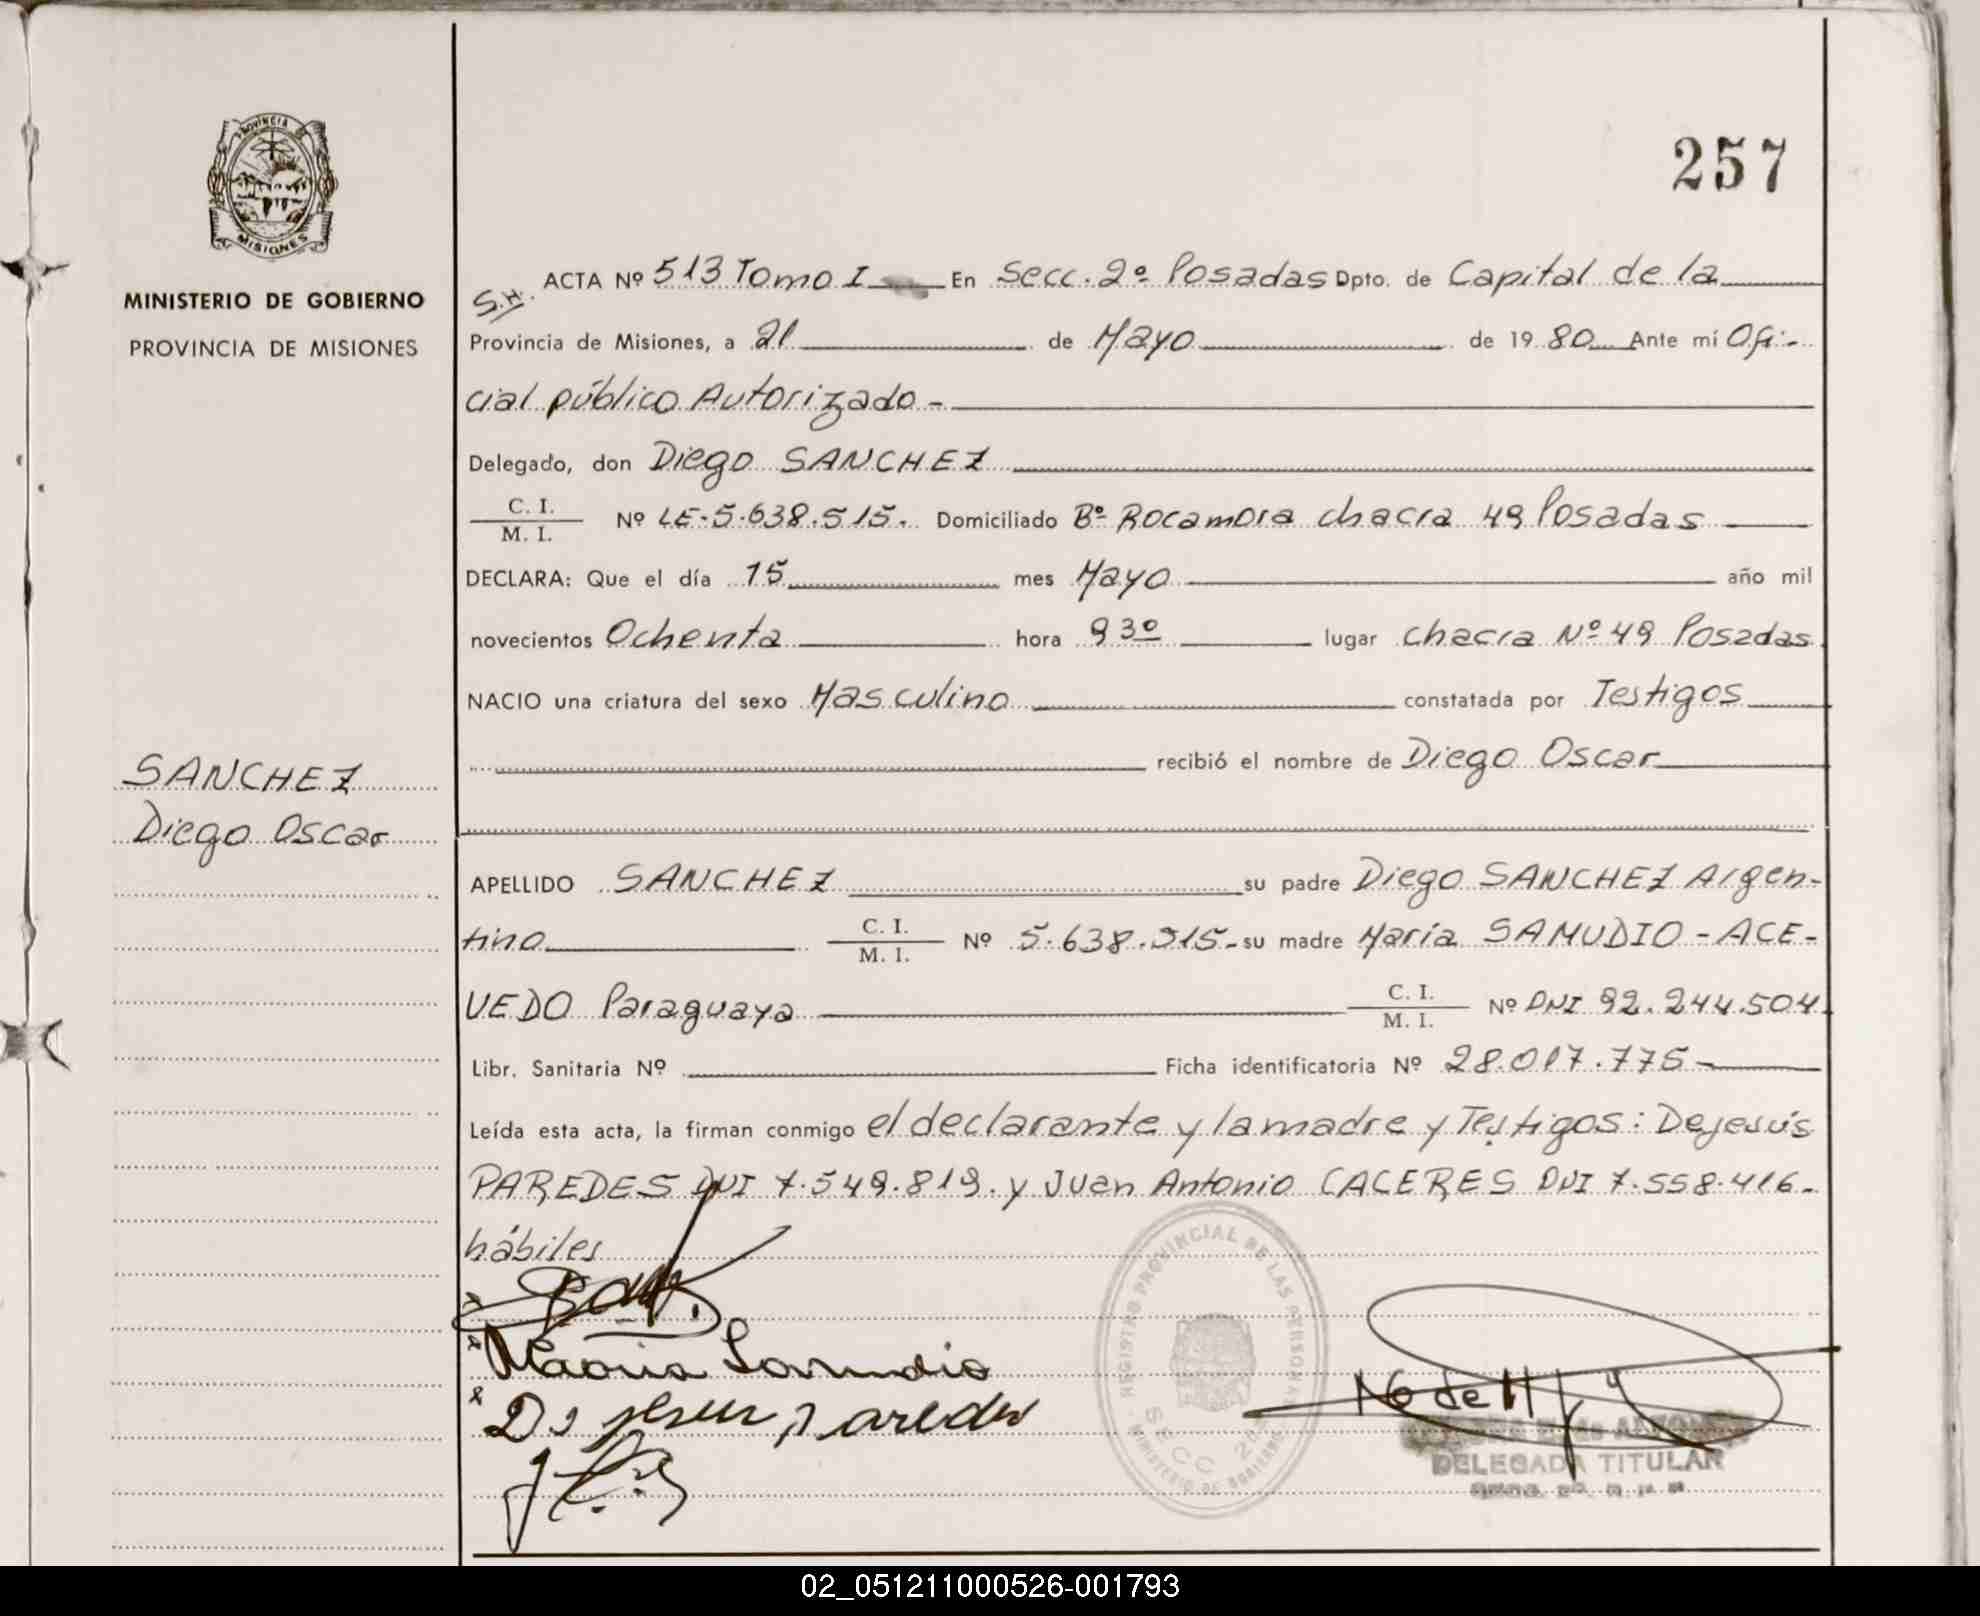 257
PROVINCIA DE
MISIONES
MINISTERIO DE GOBIERNO
PROVINCIA DE MISIONES
SANCHEZ
Diego Oscar
S.H. ACTA Nº 513 Tomo I En Secc. 2º Posadas Dpto. de Capital de la
Provincia de Misiones, a 21 de Mayo de 1980 Ante mí Ofi-
cial público Autorizado -
Delegado, don Diego SANCHEZ
C. I. / M. I. Nº LE-5.638.515. Domiciliado Bº Rocamora chacra 49 Posadas
DECLARA: Que el día 15 mes Mayo año mil
novecientos Ochenta hora 9 30 lugar chacra Nº 49 Posadas
NACIO una criatura del sexo Masculino constatada por Testigos
recibió el nombre de Diego Oscar
APELLIDO SANCHEZ su padre Diego SANCHEZ Argen-
tino C. I. / M. I. Nº 5.638.515- su madre María SAMUDIO - ACE-
VEDO Paraguaya C. I. / M. I. Nº DNI 92.244.504
Libr. Sanitaria Nº Ficha identificatoria Nº 28.017.775-
Leída esta acta, la firman conmigo el declarante y la madre y Testigos: Dejesús
PAREDES DNI 7.549.819. y Juan Antonio CACERES DNI 7.558.416-
hábiles
Maria Samudio
De jesus paredes
REGISTRO PROVINCIAL DE LAS PERSONAS
SECC 2ª
MINISTERIO DE GOBIERNO
DELEGADA TITULAR
02_051211000526-001793